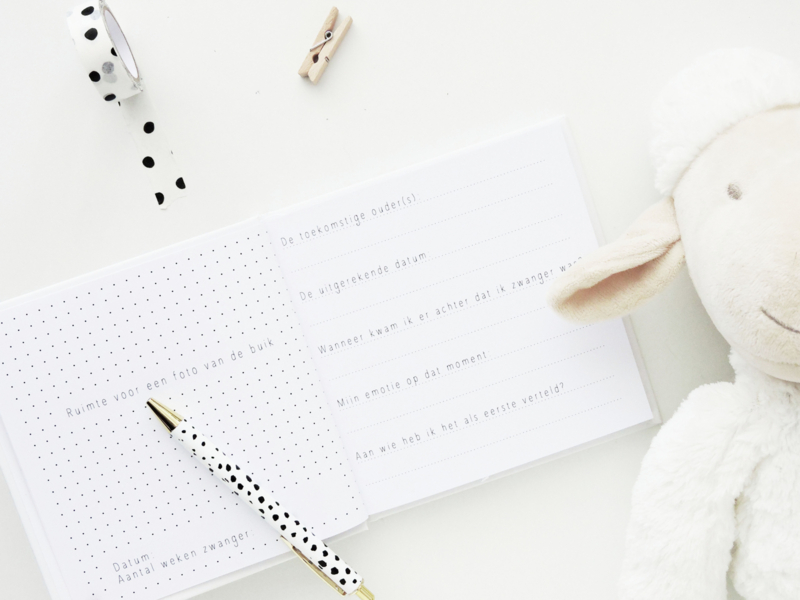 Ruimte voor een foto van de buik
Datum
Aantal weken zwanger
De toekomstige ouder(s)
De uitgerekende datum
Wanneer kwam ik er achter dat ik zwanger was?
Mijn emotie op dat moment
Aan wie heb ik het als eerste verteld?